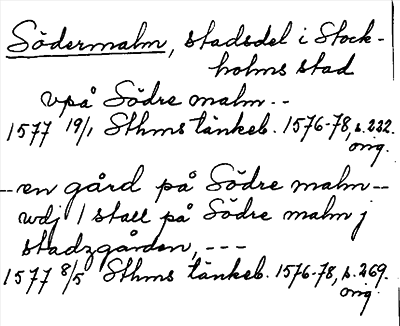 Södermalm, stadsdel i Stock-
holms stad
vpå Södre malm --
1577 19/1 Sthms tänkeb. 1576-78, s. 232.
orig.
-- en gård på Södre malm --
wdj 1 stall på Södre malm j
stadzgården, ---
1577 8/5 Sthms tänkeb. 1576-78, s. 269.
orig.